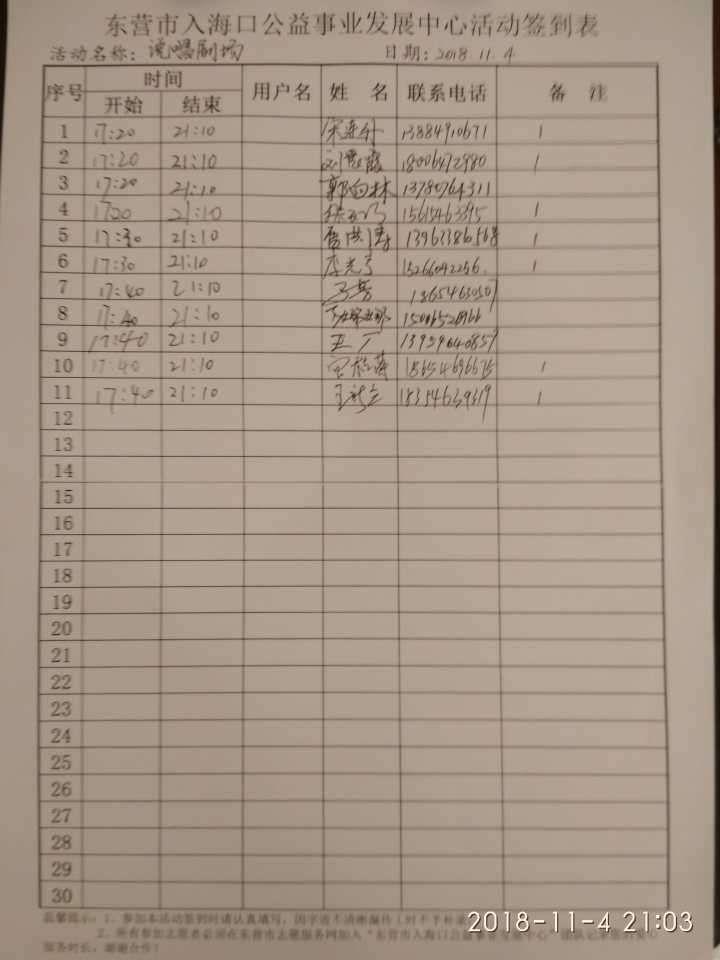 东营市入海口公益事业发展中心活动签到表
活动名称：说唱剧场 日期：2018.11.4
序号 时间 用户名 姓 名 联系电话 备 注
开始 结束
1 17:20 21:10 13884910671 1
2 17:20 21:10 18006472980 1
3 17:20 21:10 郭向林 13780764311
4 1720 21:10 15615463395 1
5 17:30 21:10 13963386568 1
6 17:30 21:10 15266042256 1
7 17:40 21:10 13654630507
8 17:40 21:10
9 17:40 21:10
10 17:40 21:10 18654696675 1
11 17:40 21:10 18354639319 1
12
13
14
15
16
17
18
19
20
21
22
23
24
25
26
27
28
29
30
温馨提示：1、参加本活动签到时请认真填写，因字迹不清晰
2、所有参加志愿者必须在东营市志愿服务网加入“东营市入海口公益事业发展中心”团队
服务时长，谢谢合作！
2018-11-4 21:03